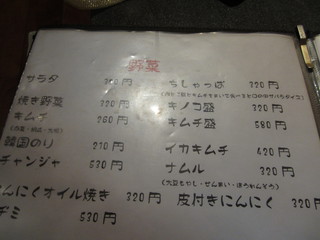 野菜
サラダ 320円
焼き野菜 720円
キムチ 260円
韓国のり 210円
チャンジャ 530円
んにくオイル焼き 320円
ヂミ 530円
ちしゃっぱ 320円
キノコ盛 320円
キムチ盛 580円
イカキムチ 420円
ナムル 320円
(大豆もやし・ぜんまい・ほうれんそう)
皮付きにんにく 320円